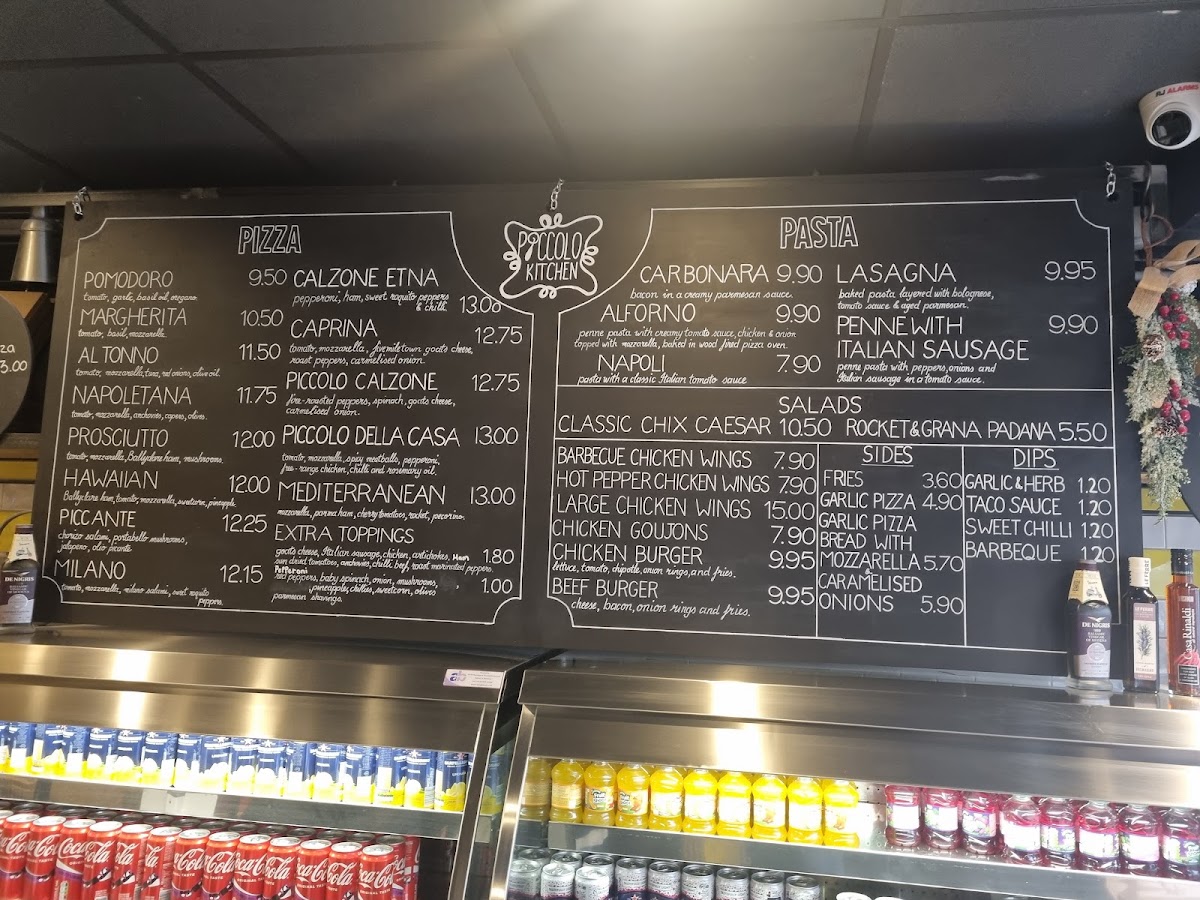 PICCOLO
KITCHEN
PIZZA
POMODORO 9.50
tomato, garlic, basil oil, oregano.
MARGHERITA 10.50
tomato, basil, mozzarella.
AL TONNO 11.50
tomato, mozzarella, tuna, red onions, olive oil.
NAPOLETANA 11.75
tomato, mozzarella, anchovies, capers, olives.
PROSCIUTTO 12.00
tomato, mozzarella, Ballylane ham, mushrooms.
HAWAIIAN 12.00
Ballylane ham, tomato, mozzarella, sweetcorn, pineapple.
PICCANTE 12.25
chorizo salami, portabello mushrooms,
jalapeno, olio picante
MILANO 12.15
tomato, mozzarella, milano salami, sweet roquito
peppers.
CALZONE ETNA
pepperoni, ham, sweet roquito peppers
& chilli. 13.00
CAPRINA 12.75
tomato, mozzarella, fivemiletown goats cheese,
roast peppers, caramelised onion.
PICCOLO CALZONE 12.75
fire-roasted peppers, spinach, goats cheese,
carmelised onion.
PICCOLO DELLA CASA 13.00
tomato, mozzarella, spicy meatballs, pepperoni,
free-range chicken, chilli and rosemary oil.
MEDITERRANEAN 13.00
mozzarella, parma ham, cherry tomatoes, rocket, pecorino.
EXTRA TOPPINGS
goats cheese, Italian sausage, chicken, artichokes, Ham 1.80
sun dried tomatoes, anchovies, chilli beef, roast marinated peppers.
Pepperoni
red peppers, baby spinach, onion, mushrooms, 1.00
pineapple, chillies, sweetcorn, olives
parmesan shavings.
PASTA
CARBONARA 9.90
bacon in a creamy parmesan sauce.
ALFORNO 9.90
penne pasta with creamy tomato sauce, chicken & onion
topped with mozzarella, baked in wood fired pizza oven.
NAPOLI 7.90
pasta with a classic Italian tomato sauce
LASAGNA 9.95
baked pasta layered with bolognese,
tomato sauce & aged parmesan.
PENNE WITH 9.90
ITALIAN SAUSAGE
penne pasta with peppers, onions and
Italian sausage in a tomato sauce.
SALADS
CLASSIC CHIX CAESAR 10.50 ROCKET & GRANA PADANA 5.50
BARBECUE CHICKEN WINGS 7.90
HOT PEPPER CHICKEN WINGS 7.90
LARGE CHICKEN WINGS 15.00
CHICKEN GOUJONS 7.90
CHICKEN BURGER 9.95
lettuce, tomato, chipotle, onion rings, and fries.
BEEF BURGER 9.95
cheese, bacon, onion rings and fries.
SIDES
FRIES 3.60
GARLIC PIZZA 4.90
GARLIC PIZZA
BREAD WITH
MOZZARELLA 5.70
CARAMELISED
ONIONS 5.90
DIPS
GARLIC & HERB 1.20
TACO SAUCE 1.20
SWEET CHILLI 1.20
BARBEQUE 1.20
RJ ALARMS
za
3.00
DE NIGRIS
DE NIGRIS
Casa Rinaldi
ab
Coca-Cola
Coca-Cola
Coca-Cola
Coca-Cola
Coca-Cola